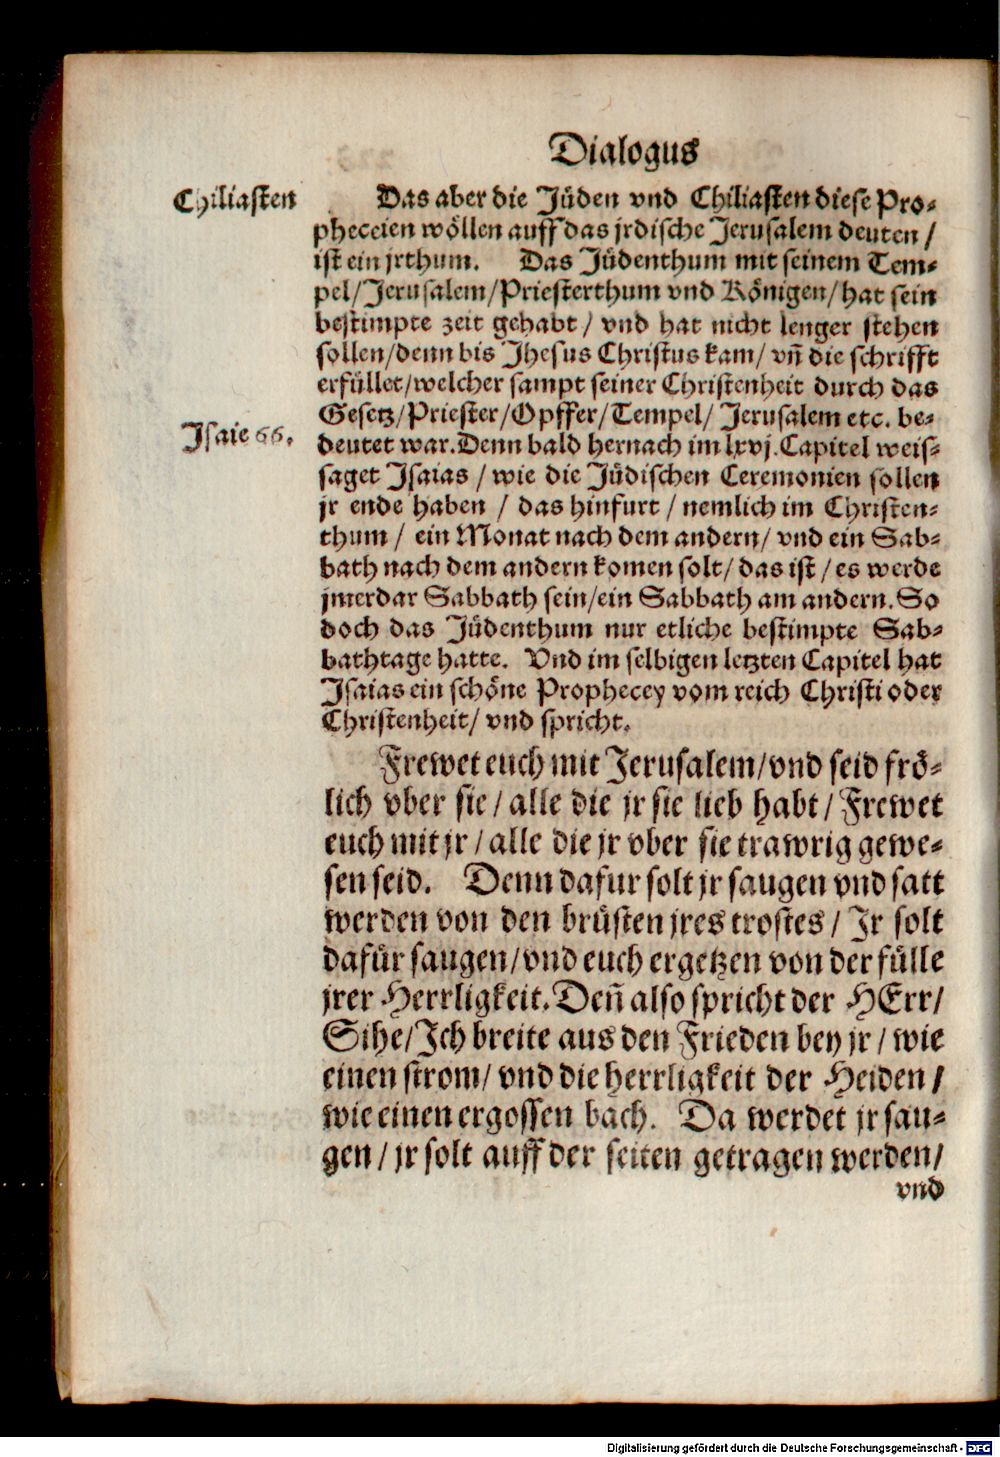 Dialogus
Chiliasten
Das aber die Jüden vnd Chiliasten diese Pro-
pheceien wöllen auff das jrdische Jerusalem deuten /
ist ein jrthum. Das Jüdenthum mit seinem Tem-
pel/Jerusalem/Priesterthum vnd Königen/hat sein
bestimpte zeit gehabt / vnd hat nicht lenger stehen
sollen/denn bis Jhesus Christus kam/ vñ die schrifft
erfüllet/welcher sampt seiner Christenheit durch das
Gesetz/Priester/Opffer/Tempel/ Jerusalem etc. be-
Jsaie 66.
deutet war.Denn bald hernach im lxvj.Capitel weis-
saget Jsaias / wie die Jüdischen Ceremonien sollen
jr ende haben / das hinfurt / nemlich im Christen-
thum / ein Monat nach dem andern/ vnd ein Sab-
bath nach dem andern komen solt/ das ist / es werde
jmerdar Sabbath sein/ein Sabbath am andern. So
doch das Jüdenthum nur etliche bestimpte Sab-
bathtage hatte. Vnd im selbigen letzten Capitel hat
Jsaias ein schöne Prophecey vom reich Christi oder
Christenheit/ vnd spricht.
Frewet euch mit Jerusalem/vnd seid frö-
lich vber sie / alle die jr sie lieb habt / Frewet
euch mit jr / alle die jr vber sie trawrig gewe-
sen seid. Denn dafur solt jr saugen vnd satt
werden von den brüsten jres trostes / Jr solt
dafür saugen/vnd euch ergetzen von der fülle
jrer Herrligkeit.Deñ also spricht der HErr/
Sihe/Jch breite aus den Frieden bey jr / wie
einen strom/ vnd die herrligkeit der Heiden /
wie einen ergossen bach. Da werdet jr sau-
gen / jr solt auff der seiten getragen werden/
vnd
Digitalisierung gefördert durch die Deutsche Forschungsgemeinschaft - DFG